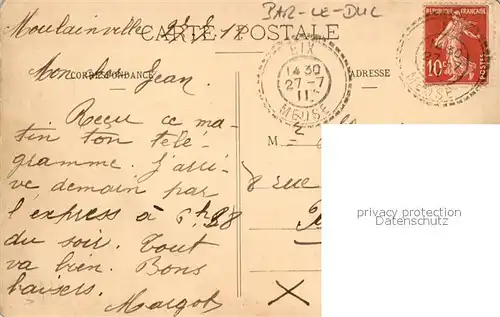 BAR-LE-DUC
Moulainville
CARTE POSTALE
CORRESPONDANCE
ADRESSE
REPUBLIQUE FRANÇAISE
10c
POSTES
EIX
14 30
27-7
11
MEUSE
MEUSE
Mon Jean.
Reçu ce ma-
tin ton télé-
gramme. J'arri-
ve demain par
l'express à 6h
du soir. Tout
va bien. Bons
baisers.
Margot
M
8 rue
privacy protection
Datenschutz